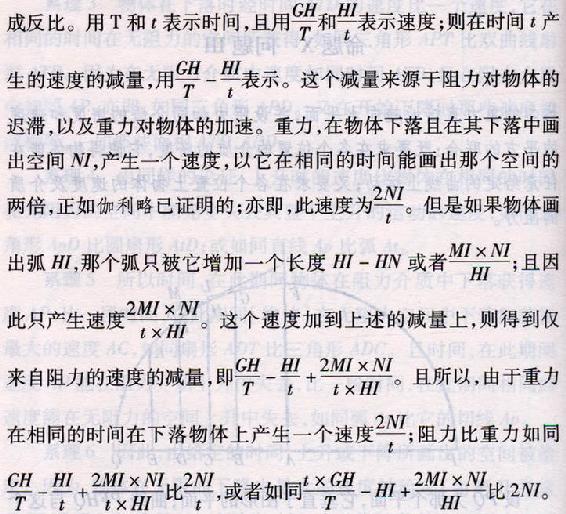 成反比。用 T 和 t 表示时间,且用 GH/T 和 HI/t 表示速度;则在时间 t 产
生的速度的减量,用 GH/T - HI/t 表示。这个减量来源于阻力对物体的
迟滞,以及重力对物体的加速。重力,在物体下落且在其下落中画
出空间 NI,产生一个速度,以它在相同的时间能画出那个空间的
两倍,正如伽利略已证明的;亦即,此速度为 2NI/t。但是如果物体画
出弧 HI,那个弧只被它增加一个长度 HI - HN 或者 MI×NI/HI;且因
此只产生速度 2MI×NI/t×HI。这个速度加到上述的减量上,则得到仅
来自阻力的速度的减量,即 GH/T - HI/t + 2MI×NI/t×HI。且所以,由于重力
在相同的时间在下落物体上产生一个速度 2NI/t;阻力比重力如同
GH/T - HI/t + 2MI×NI/t×HI 比 2NI/t,或者如同 t×GH/T - HI + 2MI×NI/HI 比 2NI。